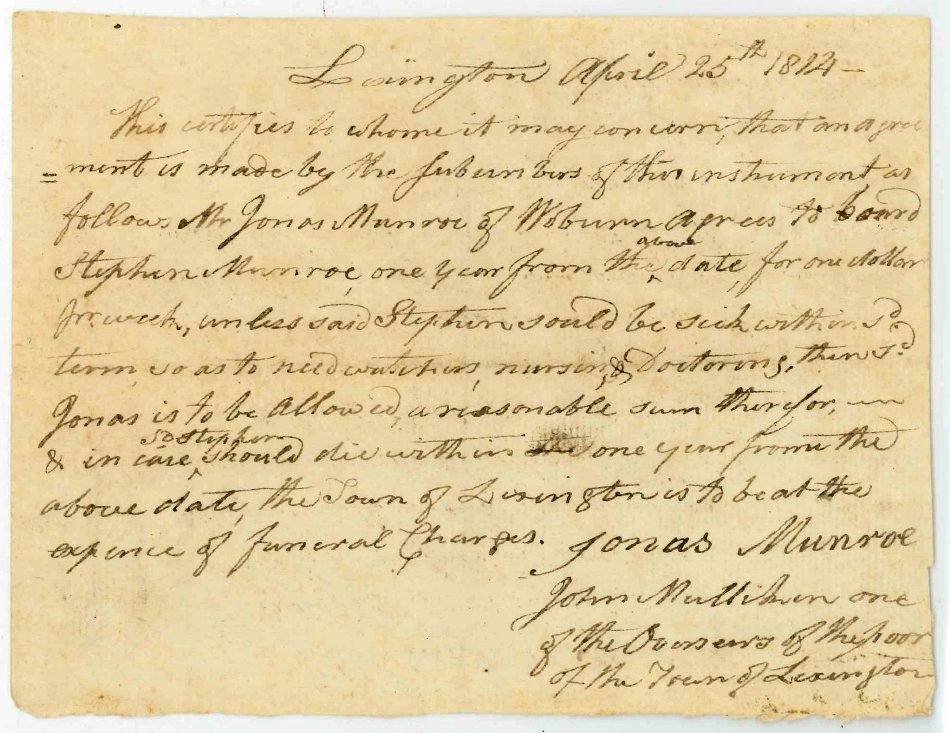 Lexington April 25th 1814 –
This certifies to whome it may concern, that an agree
= ment is made by the Subscribers of this instrument as
follows Mr Jonas Munroe of Woburn agrees to board
Stephen Munroe, one year from the above date, for one dollar
pr week, unless said Stephen sould be sick within sd
term, so as to need watchers, nursing & Doctoring, then sd
Jonas is to be Allowed, a reasonable sum therefor,
& in case sd Stephen should die within one year from the
above date, the Town of Lexington is to be at the
expence of funeral Charges. Jonas Munroe
John Mulliken one
of the Overseers of the poor
of the Town of Lexington